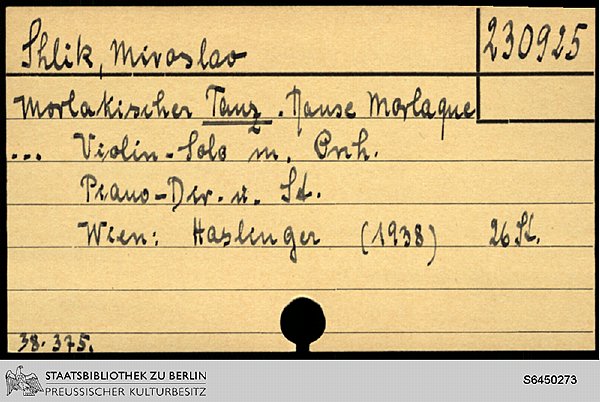 Shlik, Miroslav
230925
Morlakischer Tanz. Danse Morlaque
... Violin-Solo m. Orch.
Piano-Dir. u. St.
Wien: Haslinger (1938) 26 St.
38. 375.
STAATSBIBLIOTHEK ZU BERLIN
PREUSSISCHER KULTURBESITZ
S6450273